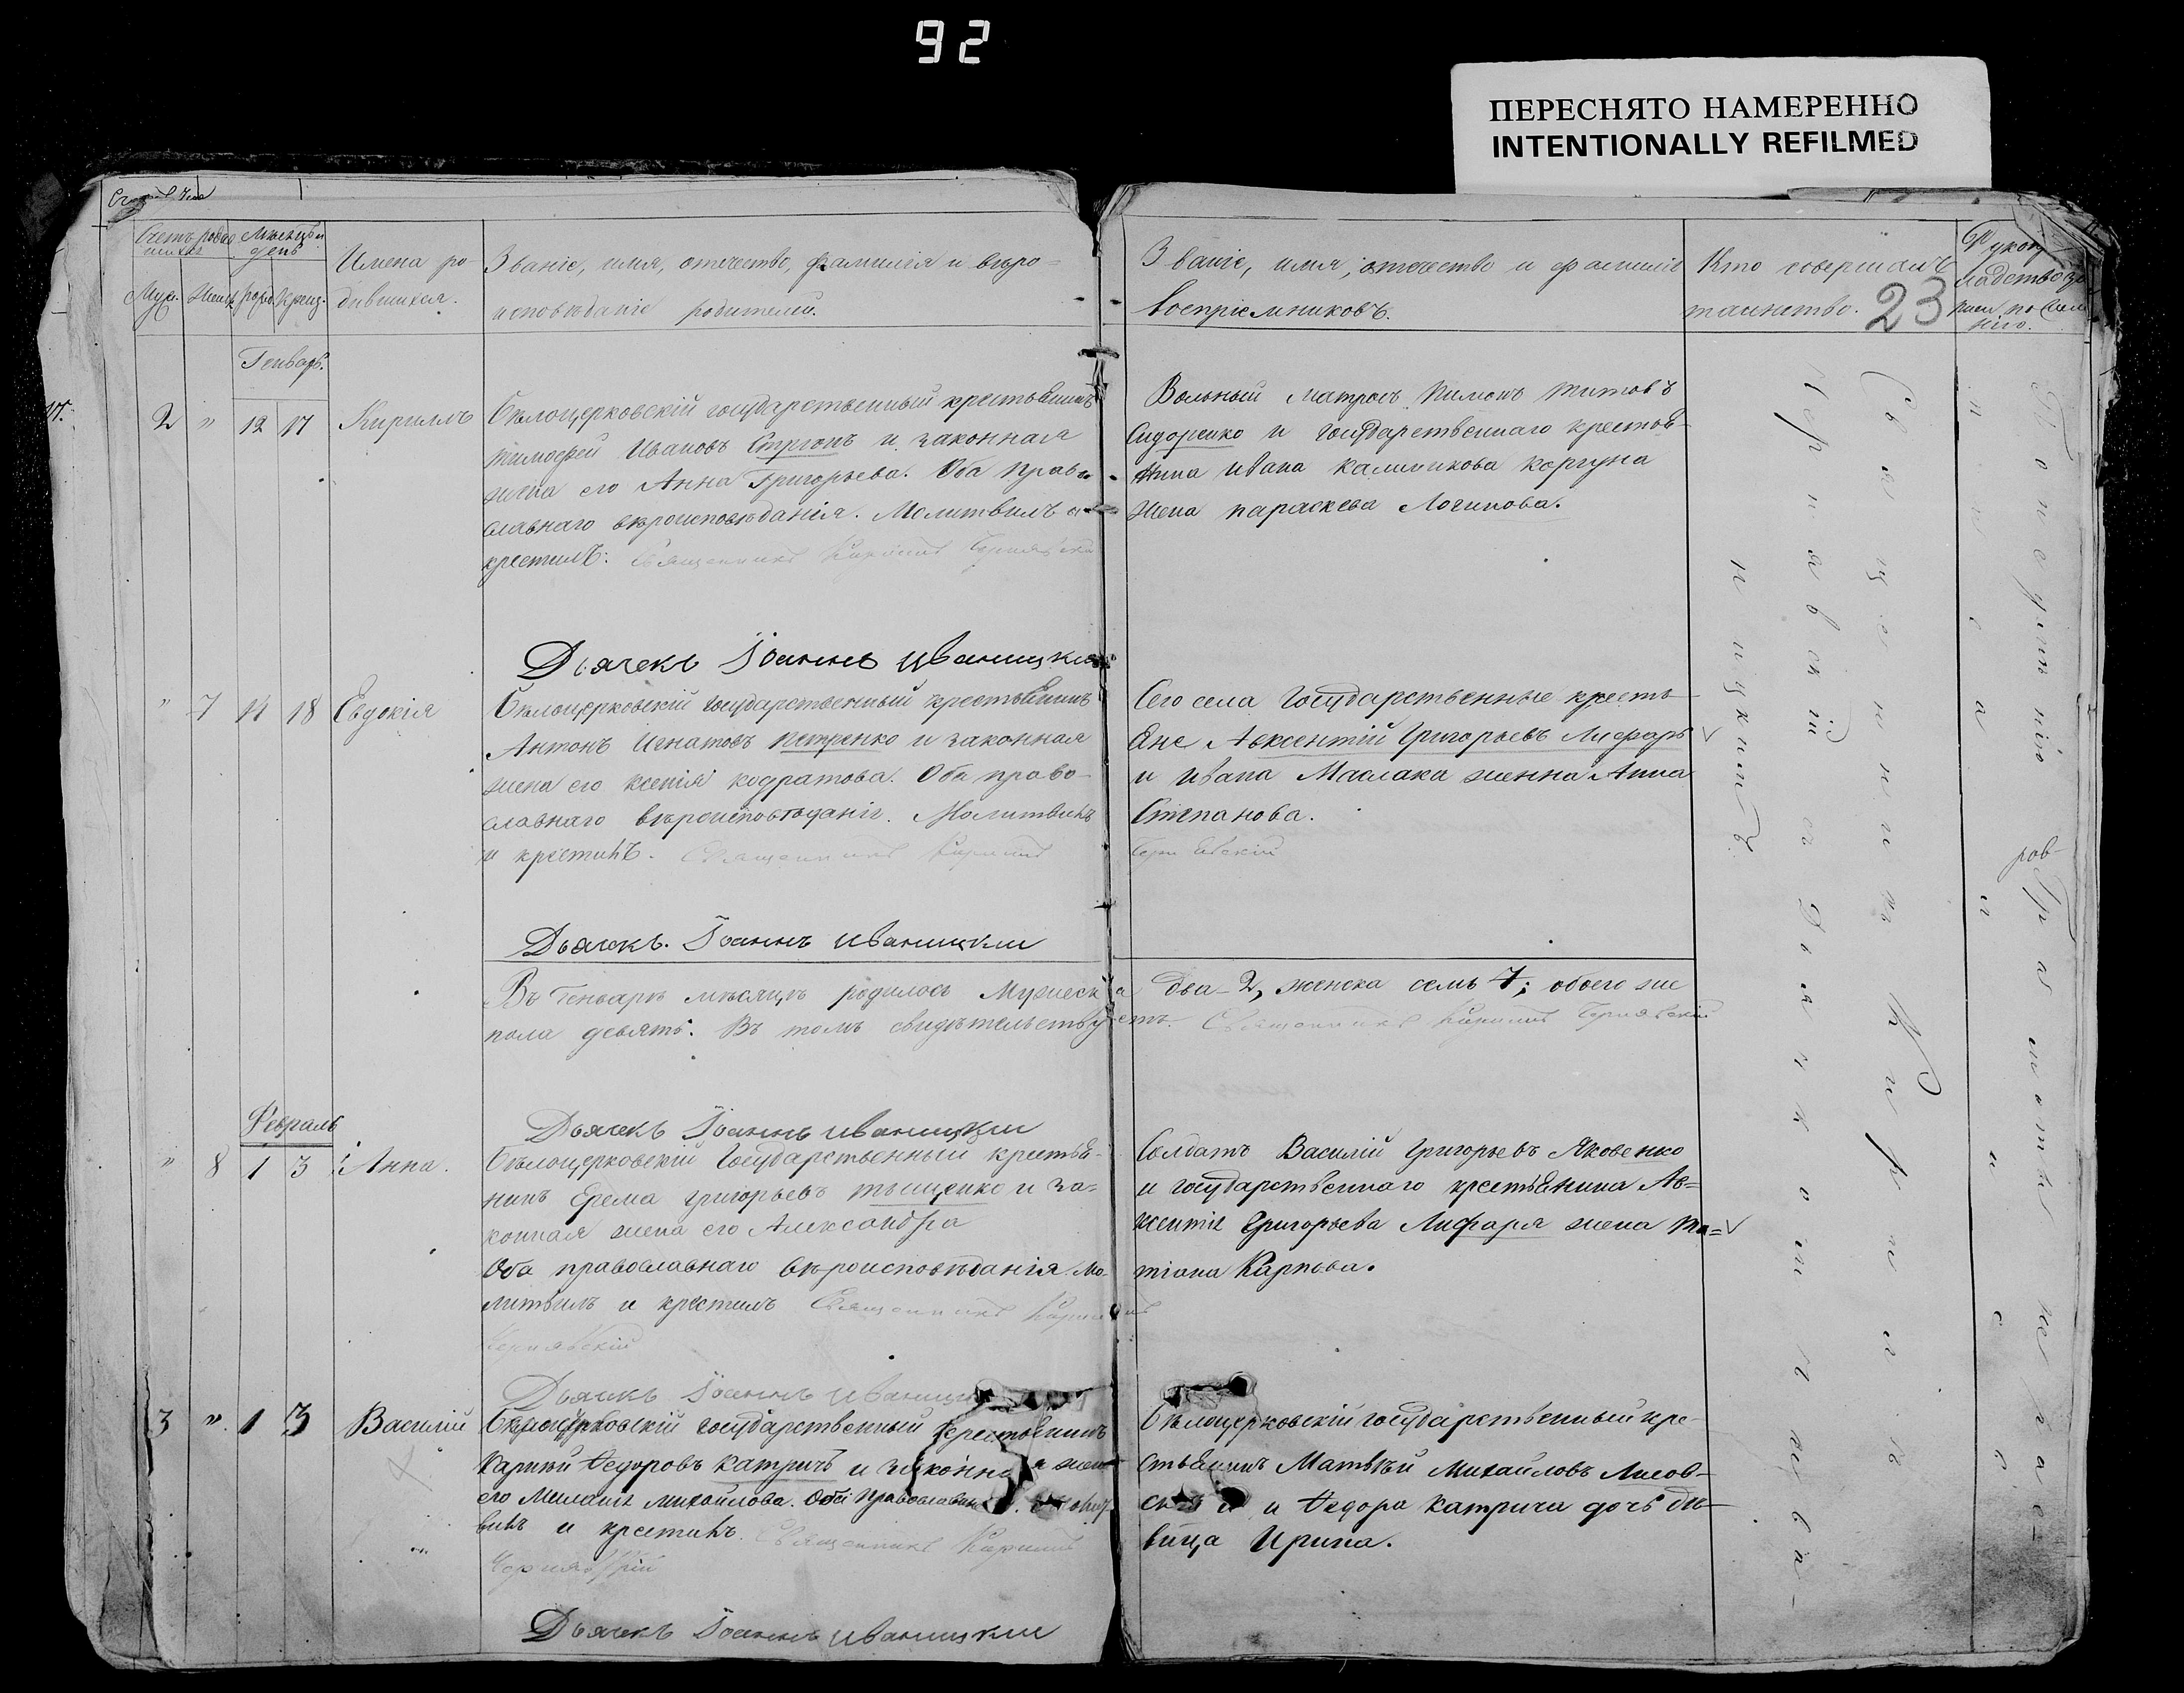 92
ПЕРЕСНЯТО НАМЕРЕННО
INTENTIONALLY REFILMED
Счетъ родив
шихся
Мѣсяцъ и
день
Муж. Женск родж. Крещ.
Имена ро
дившихся.
Званіе, имя, отечество, фамилія и вѣро-
исповѣданіе родителей.
Званіе, имя, отечество и фамилія
воспріемниковъ.
Кто совершалъ
таинство. 23
Генварь.
2 " 12 17 Кириллъ
Бѣлоцерковскій государственный крестьянинъ
Тимофей Ивановъ и законная
жена его Анна Григорьева. Оба право
славнаго вѣроисповѣданія. Молитвилъ и
крестилъ: Священникъ Кириллъ Чернявскій
Вольный матросъ Пименъ Титовъ
Сидоренко и государственнаго крестья-
нина Ивана Калиникова Коргуна
жена Параскева Логинова.
Дьячекъ Іоаннъ Иваницкій
" 7 18 Евдокія
Бѣлоцерковскій государственный крестьянинъ
Антонъ Игнатовъ Петренко и законная
жена его Ксенія Кодратова. Оба право-
славнаго вѣроисповѣданія. Молитвилъ
и крестилъ. Священникъ Кириллъ Чернявскій
Сего села государственные кресть
яне Авксентій Григорьевъ Лифарь
и Ивана Маслака женна Анна
Степанова.
Дьячекъ. Іоаннъ Иваницкій
Въ Генварѣ мѣсяцѣ родилось Мужеска два 2, женска семь 7; обоего же
пола девять. Въ томъ свидѣтельствуетъ. Священникъ Кириллъ Чернявскій
Дьячекъ Іоаннъ Иваницкій
Февраль
" 8 1 3 Анна.
Бѣлоцерковскій государственный крестья-
нинъ Ерема Григорьевъ Тыщенко и за-
конная жена его Александра
Оба православнаго вѣроисповѣданія. Мо-
литвилъ и крестилъ Священникъ Кириллъ
Чернявскій
Солдатъ Василій Григорьевъ Яковенко
и государственнаго крестьянина Ав-
ксентія Григорьева Лифаря жена Та-
тіана Карпова.
Дьячекъ Іоаннъ Иваницкій
3 " 1 3 Василій
Бѣлоцерковскій государственный крестьянинъ
Карпъ Федоровъ Катричъ и законная жена
его Меланія Михайлова. Оба православн
вилъ и крестилъ. Священникъ Кириллъ
Чернявскій
Бѣлоцерковскій государственный кре-
стьянинъ Матвѣй Михайловъ Лисов-
и Федора Катрича дочь дѣ-
вица Ирина.
Дьячекъ Іоаннъ Иваницкій
Священникъ Кириллъ
Чернявскій съ Дьячкомъ Іоанномъ Ива-
ницкимъ